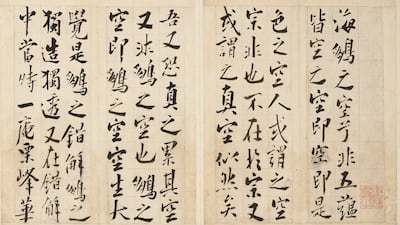 海鷁之空乎非五蘊
皆空之空即空即是
色之空人或謂之空
宗非也不在於宗又
或謂之真空似然矣
吾又恐真之累其空
又非鷁之空也鷁之
空即鷁之空空生大
覺是鷁之錯解鷁之
獨造獨透又在錯解
中當時一庵栗峰華